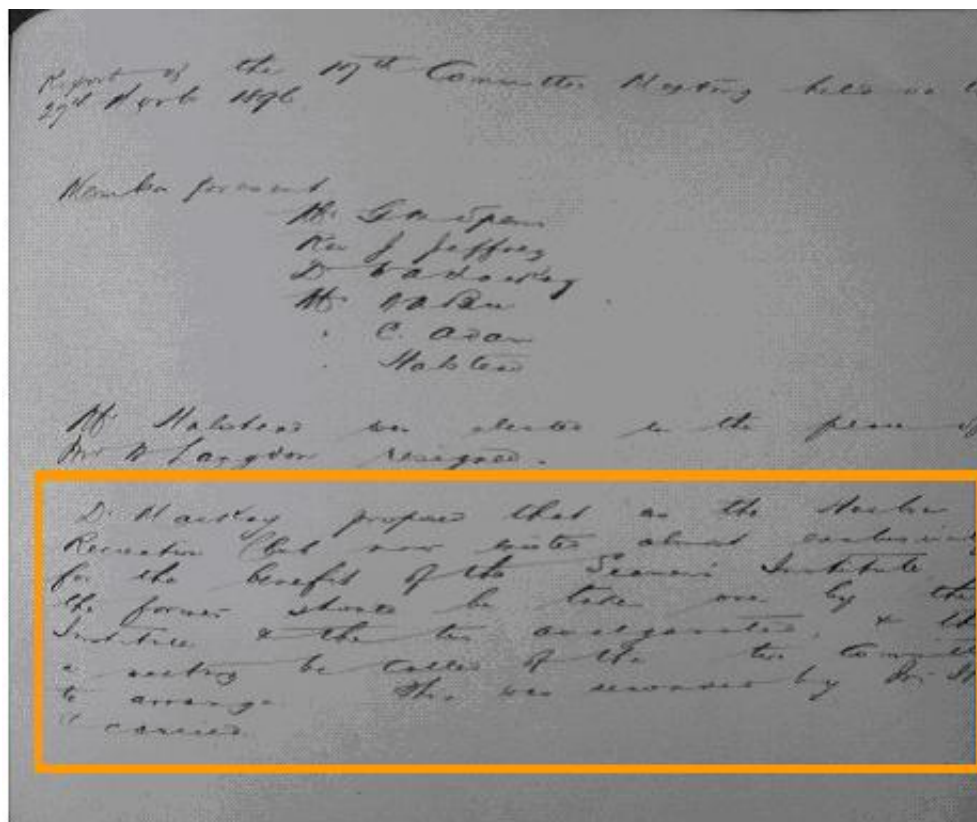 Report of the 107th Committee Meeting held on
29th April 1896.
Members present
Mr. G
Rev J Jeffrey
Dr Mackay
Mr
" C. Adam
" Halstead
Mr Halstead was elected in the place of
Mr Langdon resigned.
Dr. Mackay proposed that as the
Recreation Club now exists almost
for the benefit of the Seamen's Institute
the former should be taken over by the
Institute & the two amalgamated, &
a meeting be called of the two
to arrange. This was seconded by Mr.
& carried.